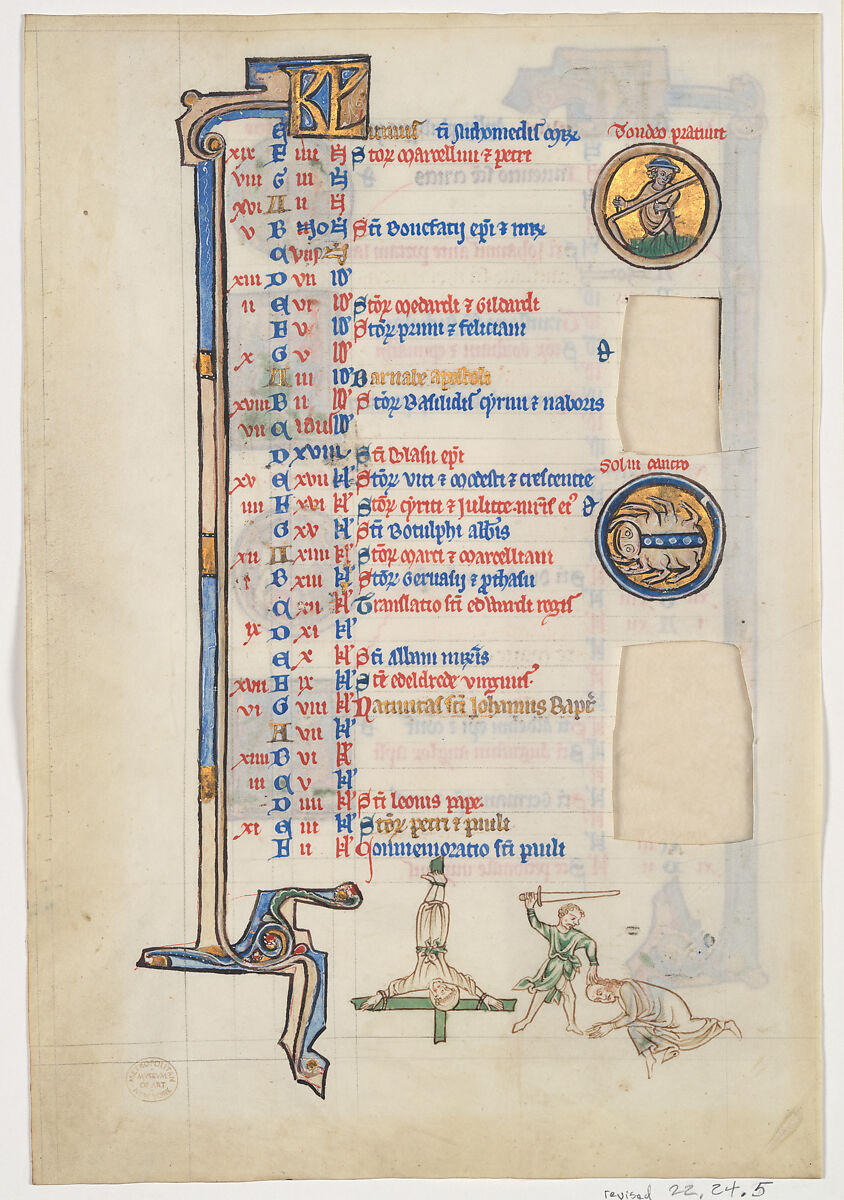 KL
E Iunius sci Nichomedis mr
Tondeo pratum
xix F iiii N Stor Marcellini & petri
viii G iii N
xvi A ii N
v B No N Sci Bonefatii epi & mr
C viii
xiii D vii id
ii E vi id Stor Medardi & Gildardi
F v id Stor primi & feliciani
x G v id
A iii id Barnabe Apostoli
xviii B ii id Stor Basilidis Cyrini & naboris
vii C idus
D xviii Sci Blasii epi
Sol in cancro
xv E xvii kl Stor viti & modesti & crescentie
iiii F xvi kl Stor Cyrici & Julitte
G xv kl Sci Botulphi abbis
xii A xiiii kl Stor Marci & Marcelliani
i B xiii kl Stor Gervasii & prthasii
C xii kl Translatio sci edwardi regis
ix D xi kl
E x kl Sci Albani mris
xvii F ix kl Sce edeldrede virginis
vi G viii kl Nativitas sci Johannis Bapte
A vii kl
xiiii B vi kl
iii C v kl
D iiii kl Sci leonis pape
xi E iii kl Stor petri & pauli
F ii kl Commemoratio sci pauli
METROPOLITAN MVSEVM OF ART NEW YORK
revised 22.24.5